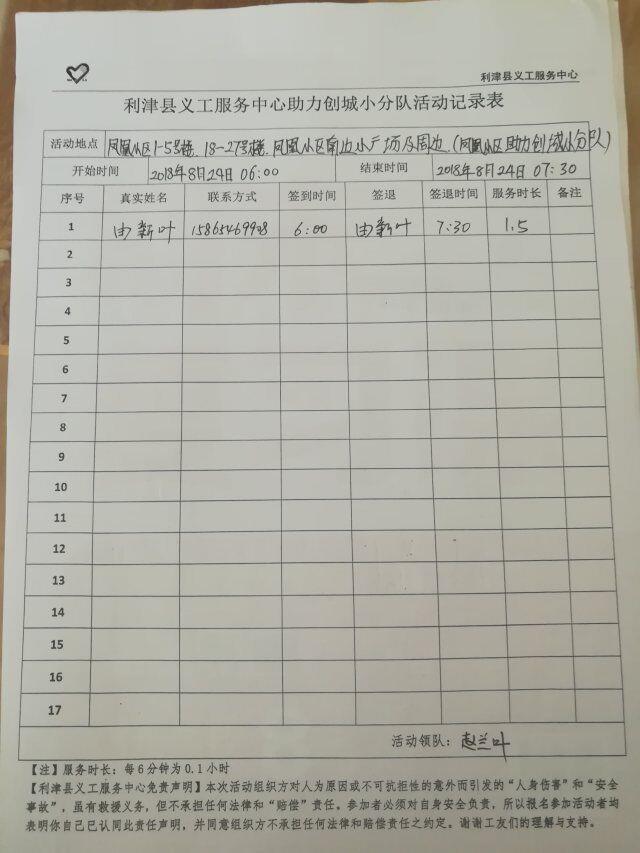 利津县义工服务中心
利津县义工服务中心助力创城小分队活动记录表
活动地点 凤凰小区1-5号楼、18-27号楼、凤凰小区南边小广场及周边(凤凰小区助力创城小分队)
开始时间 2018年8月24日 06:00 结束时间 2018年8月24日 07:30
序号 真实姓名 联系方式 签到时间 签退 签退时间 服务时长 备注
1 由新叶 15865469998 6:00 由新叶 7:30 1.5
2
3
4
5
6
7
8
9
10
11
12
13
14
15
16
17
活动领队: 赵兰叶
【注】服务时长:每6分钟为0.1小时
【利津县义工服务中心免责声明】本次活动组织方对人为原因或不可抗担性的意外而引发的“人身伤害”和“安全
事故”,虽有救援义务,但不承担任何法律和“赔偿”责任。参加者必须对自身安全负责,所以报名参加活动者均
表明你自己已认同此责任声明,并同意组织方不承担任何法律和赔偿责任之约定。谢谢工友们的理解与支持。